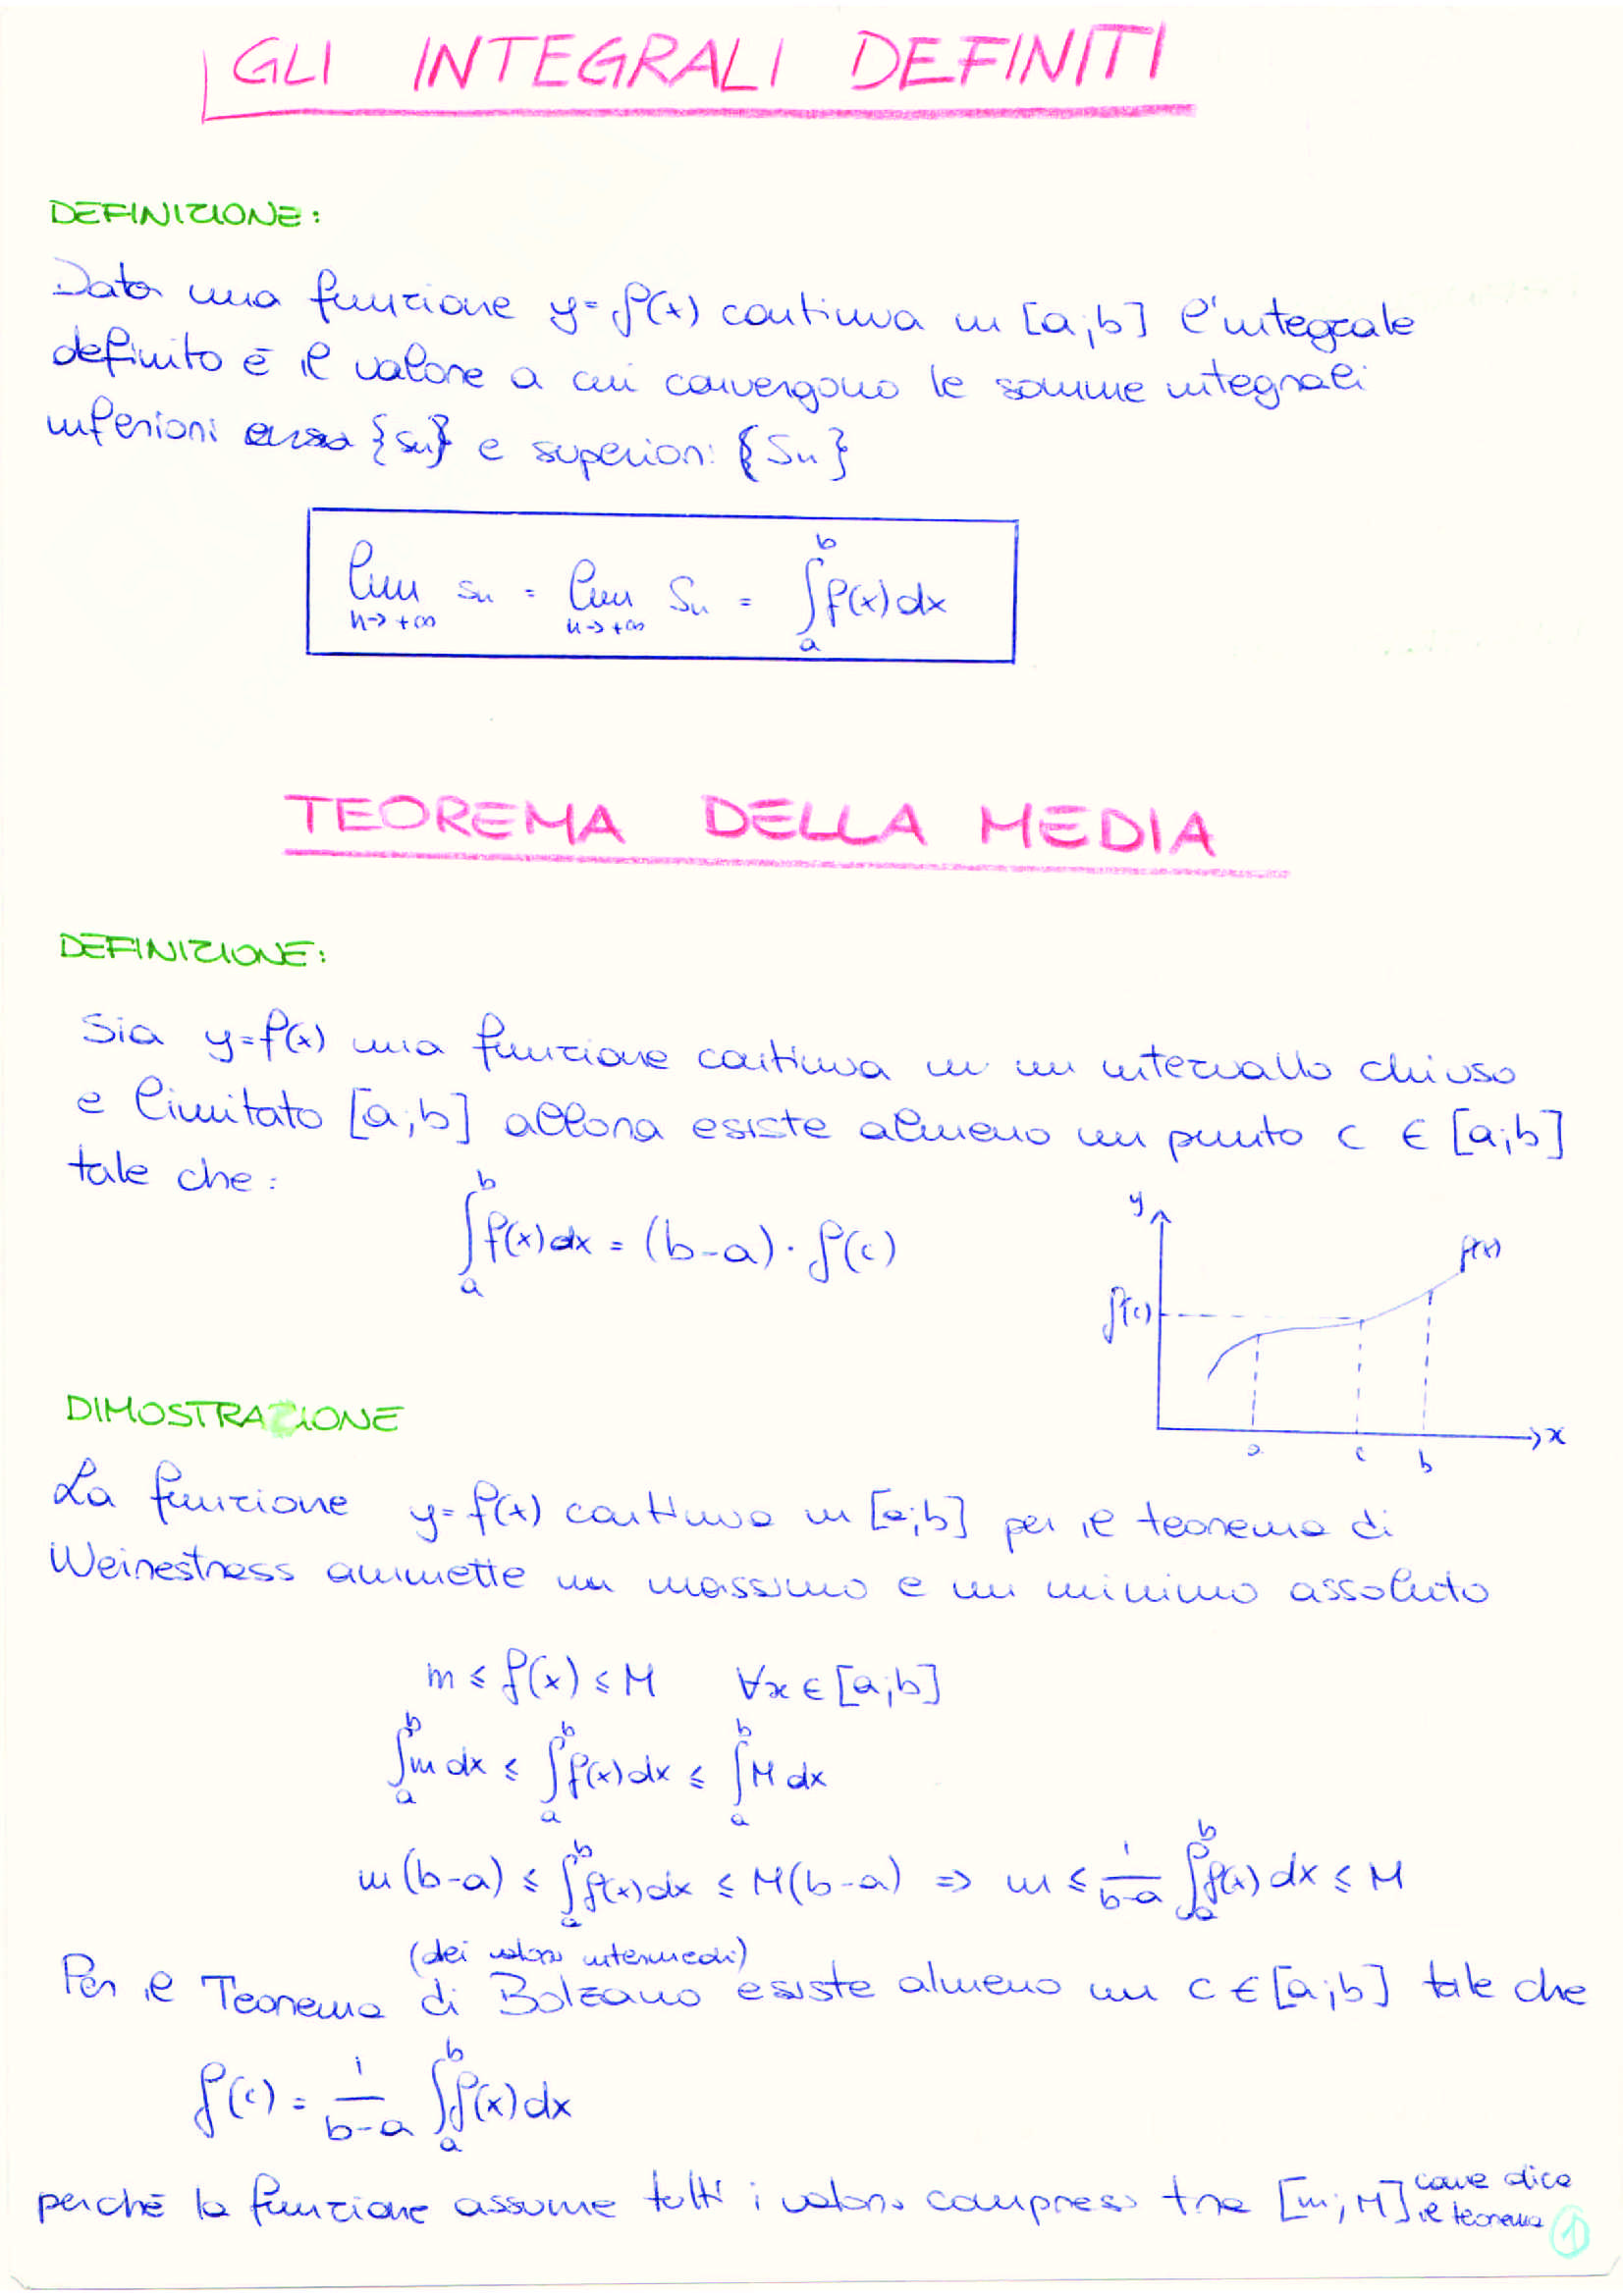 GLI INTEGRALI DEFINITI
DEFINIZIONE:
Data una funzione y=f(x) continua in [a;b] l'integrale
definito è il valore a cui convergono le somme integrali
inferiori {sn} e superiori {Sn}
lim sn = lim Sn = ∫ₐᵇ f(x)dx
n→+∞ n→+∞
TEOREMA DELLA MEDIA
DEFINIZIONE:
Sia y=f(x) una funzione continua in un intervallo chiuso
e limitato [a;b] allora esiste almeno un punto c ∈ [a;b]
tale che:
∫ₐᵇ f(x)dx = (b-a)·f(c)
y
f(x)
f(c)
a c b
x
DIMOSTRAZIONE
La funzione y=f(x) continua in [a;b] per il teorema di
Weirestrass ammette un massimo e un minimo assoluto
m ≤ f(x) ≤ M ∀x ∈ [a;b]
∫ₐᵇ m dx ≤ ∫ₐᵇ f(x)dx ≤ ∫ₐᵇ M dx
m(b-a) ≤ ∫ₐᵇ f(x)dx ≤ M(b-a) ⇒ m ≤ 1/(b-a) ∫ₐᵇ f(x)dx ≤ M
(dei valori intermedi)
Per il Teorema di Bolzano esiste almeno un c ∈ [a;b] tale che
f(c) = 1/(b-a) ∫ₐᵇ f(x)dx
perchè la funzione assume tutti i valori compresi tra [m;M] come dice
il teorema
1